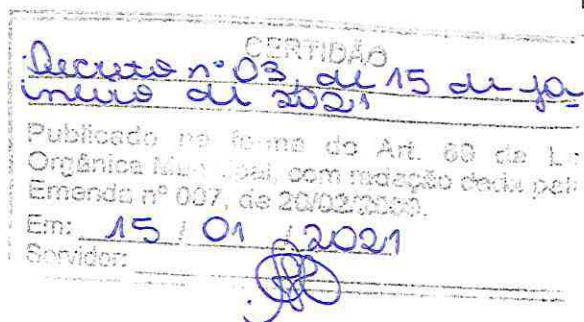 CERTIDÃO
Decreto nº 03, de 15 de ja-
neiro de 2021
Publicado na forma do Art. 60 da L
Orgânica Municipal, com redação dada pel
Emenda nº 007, de 20/02/
Em: 15 / 01 / 2021
Servidor: